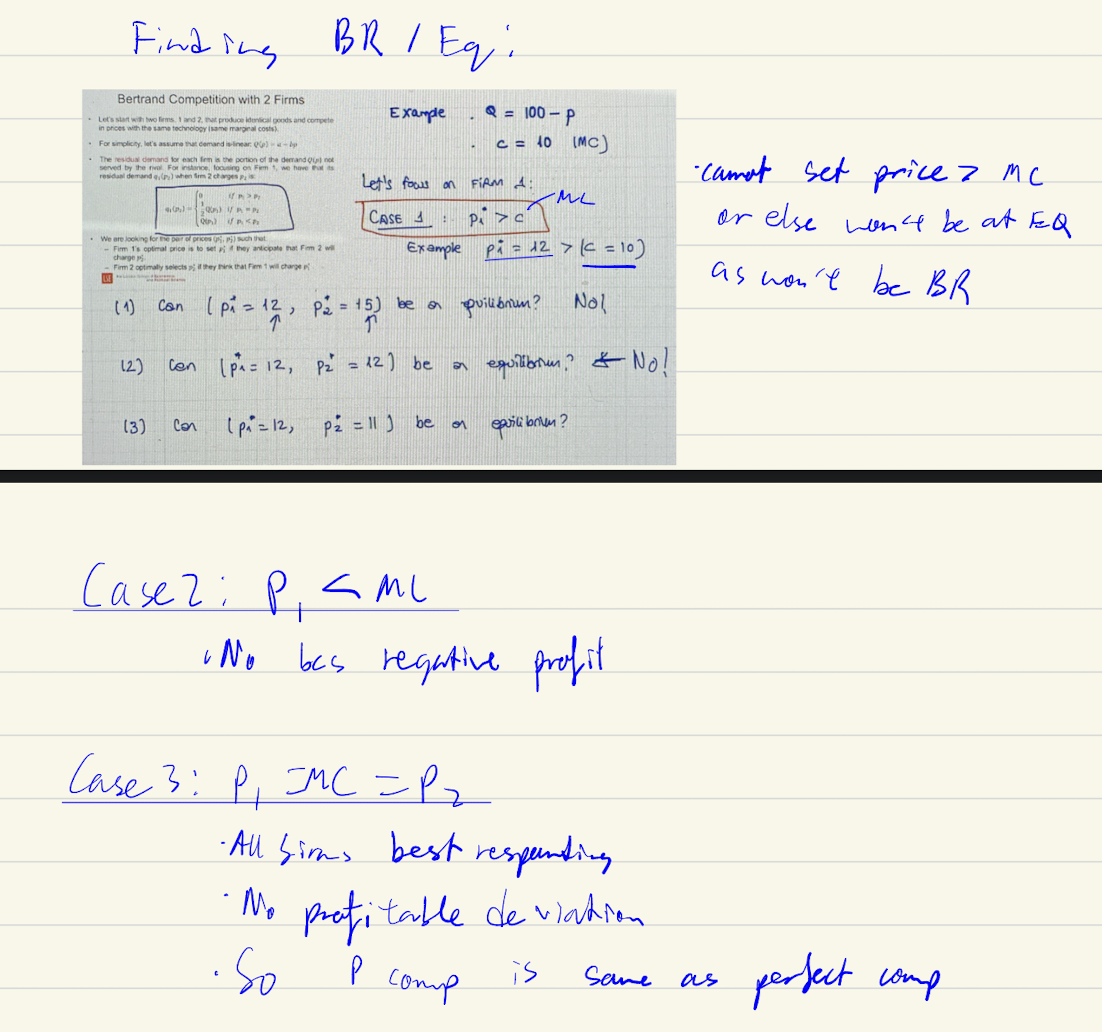 Finding BR / Eq:
Bertrand Competition with 2 Firms
• Let's start with two firms, 1 and 2, that produce identical goods and compete
in prices with the same technology (same marginal costs).
• For simplicity, let's assume that demand is linear: Q(p) = a − bp
• The residual demand for each firm is the portion of the demand Q(p) not
served by the rival. For instance, focusing on Firm 1, we have that its
residual demand q₁(p₁) when firm 2 charges p₂ is:
q₁(p₁) = { 0 if p₁ > p₂
½Q(p₁) if p₁ = p₂
Q(p₁) if p₁ < p₂
• We are looking for the pair of prices (p₁*, p₂*) such that:
– Firm 1's optimal price is to set p₁* if they anticipate that Firm 2 will
charge p₂*
– Firm 2 optimally selects p₂* if they think that Firm 1 will charge p₁*
Example . Q = 100 - p
. c = 10 (MC)
Let's focus on FIRM 1:
MC
CASE 1 : p₁* > c
Example p₁* = 12 > (c = 10)
(1) Can (p₁* = 12, p₂* = 15) be an equilibrium? No!
↑ ↑
(2) Can (p₁* = 12, p₂* = 12) be an equilibrium? ← No!
(3) Can (p₁* = 12, p₂* = 11) be an equilibrium?
· cannot set price > MC
or else won't be at EQ
as won't be BR
Case 2: P₁ < MC
· No bcs negative profit
Case 3: P₁ = MC = P₂
· All firms best responding
· No profitable deviation
· So P comp is same as perfect comp